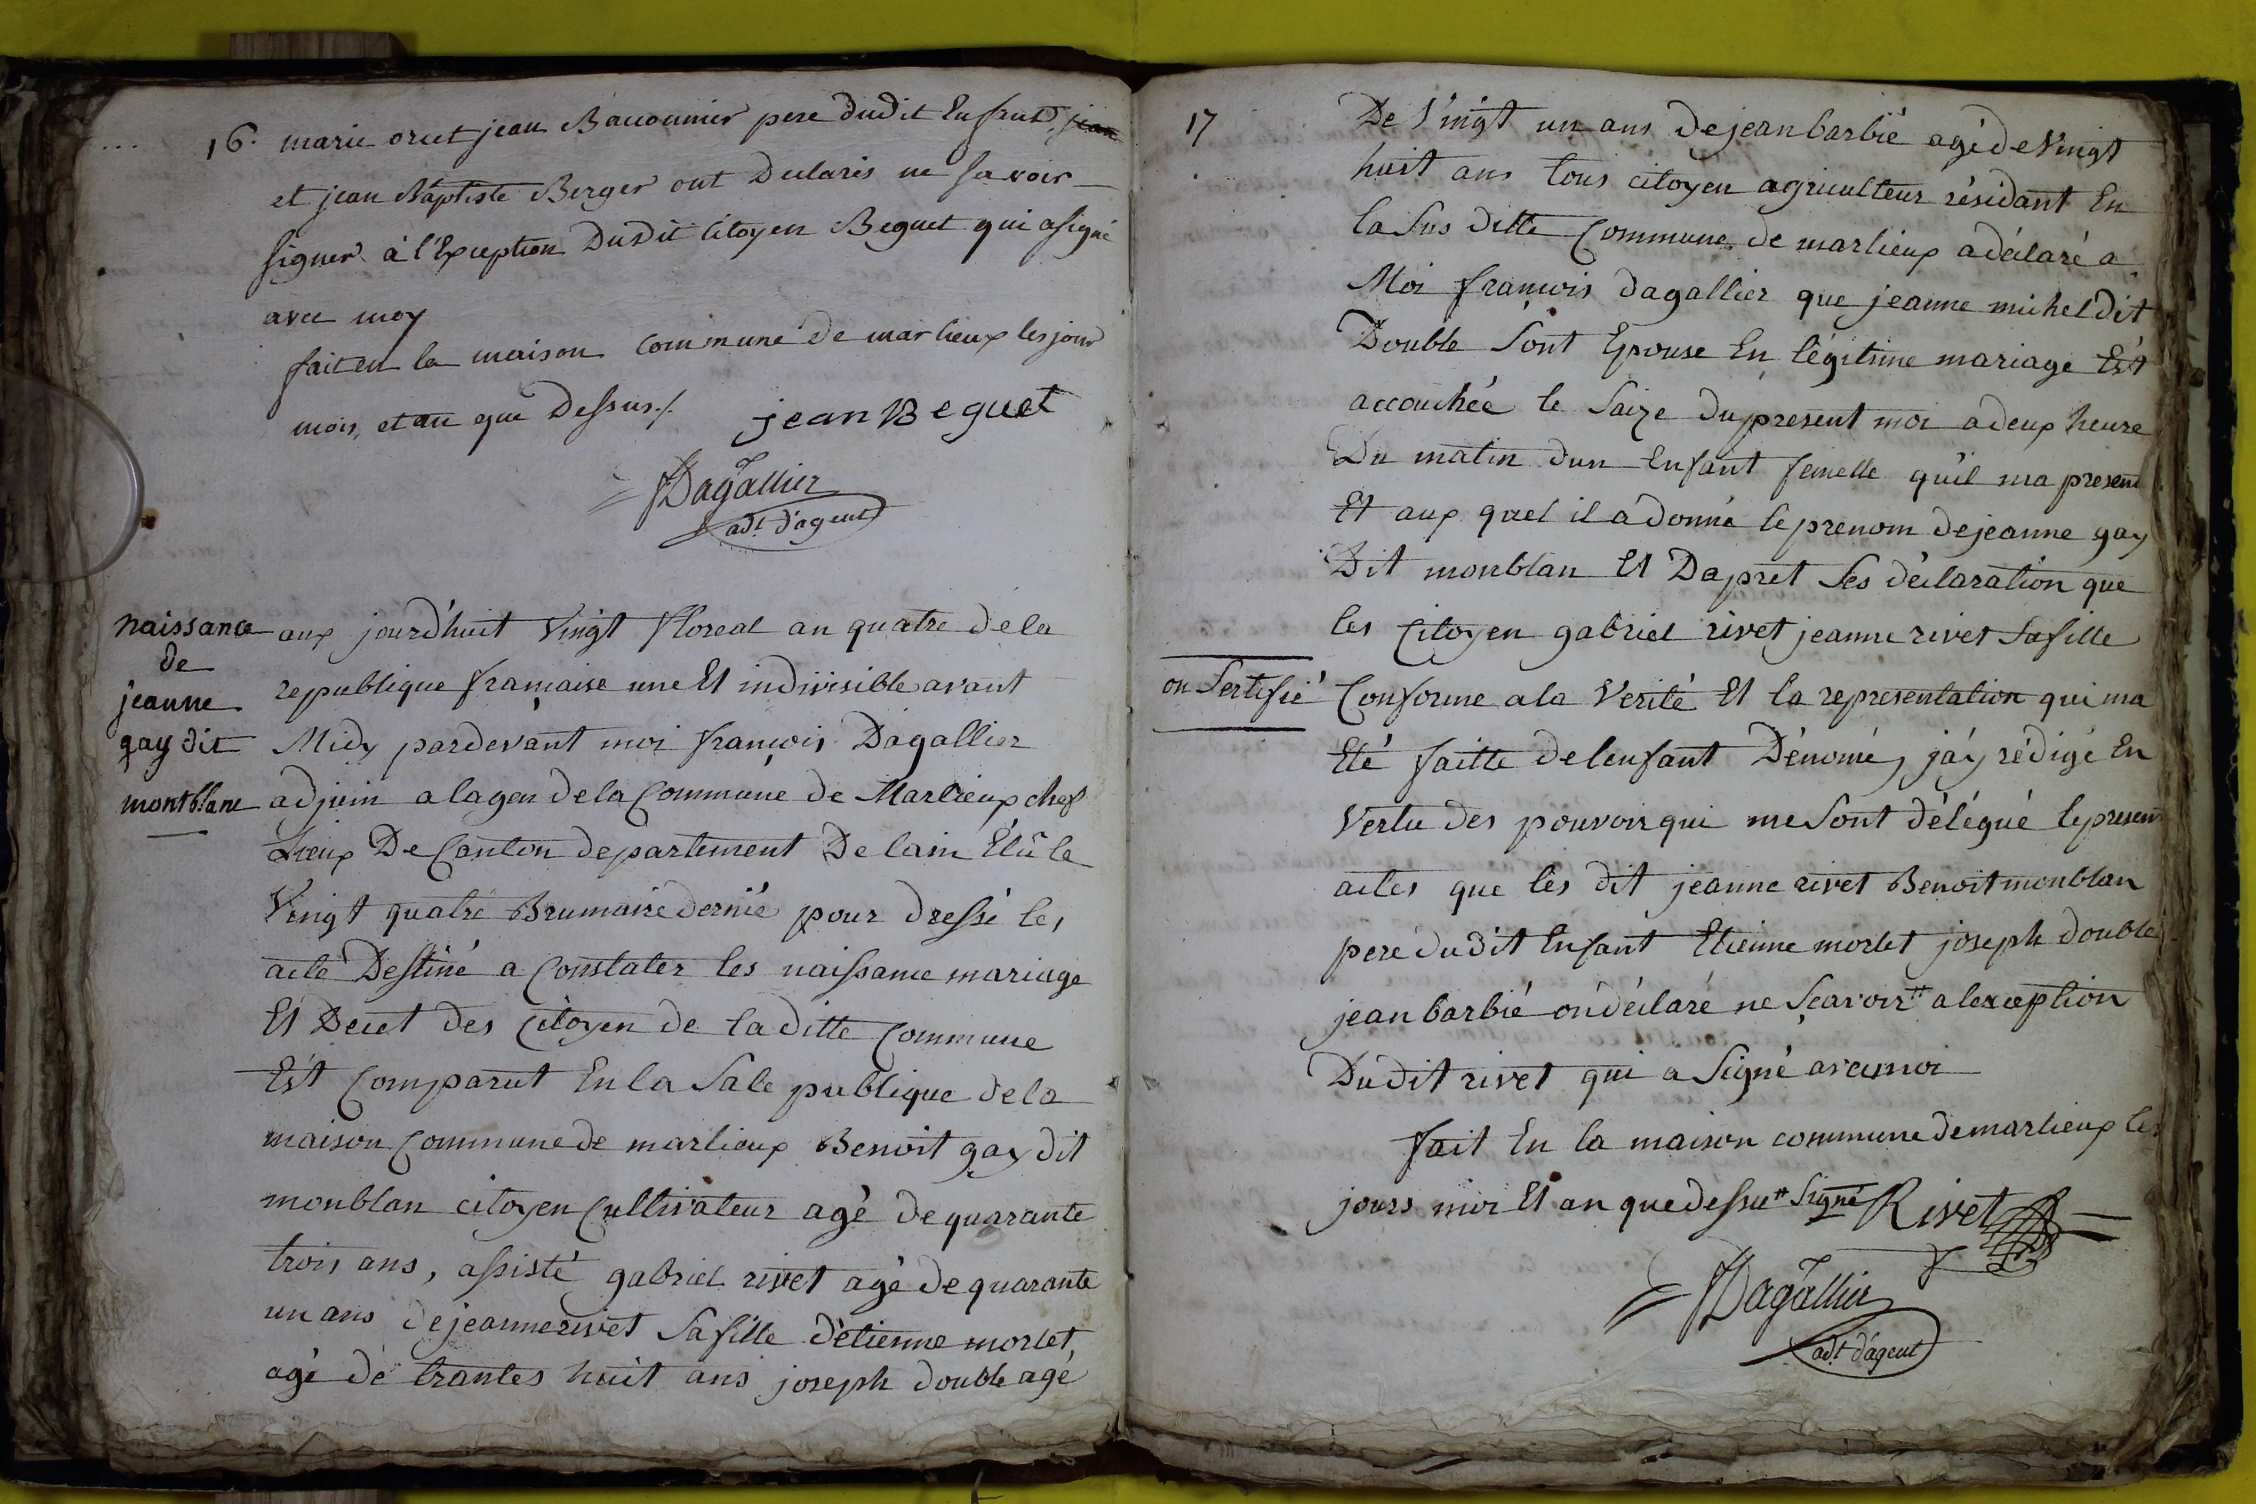 16. marie oret jean Bauounier pere dudit Enfant, jean
et jean Baptiste Berger ont Declarés ne savoir
signer à l'Exception Dudit Citoyen Beguet qui asigné
avec moy
fait en la maison commune de marlieux les jour
mois, et an que Dessus ./.
jean Beguet
Dagallier
adt. d'agent
naissance
de
jeanne
gay dit
montblanc
aux jourd'huit Vingt floreal an quatre de la
republique française une Et indivisible avant
Midy pardevant moi françois Dagallier
adjoin a lagen de la Commune de Marlieux chef
Lieux De Canton departement De lain Élû le
Vingt quatre Brumaire dernié pour dressé les
acte Destiné a Constater les naissance mariage
Et Decet des Citoyen de la ditte Commune
Est Comparut En la Sale publique de la
maison Commune de marlieux Benoit gay dit
monblan citoyen Cultivateur agé de quarante
trois ans, assisté gabriel rivet agé de quarante
un ans de jeanne rivet Sa fille d'etienne morlet,
agé de trantes huit ans joseph double agé
17
De Vingt un ans De jean barbié agé de Vingt
huit ans tous citoyen agriculteur résidant En
la Sus ditte Commune de marlieux a déclaré a
Moi françois dagallier que jeanne michel dit
Double Sont Epouse En légitime mariage Est
accouchée le Saize du present moi a deux heure
Du matin dun Enfant femelle qu'il ma presen
Et aux quel il a donné le prenom de jeanne gay
Dit monblan Et Dapret Ses déclaration que
les Citoyen gabriel rivet jeanne rivet Sa fille
on Sertifié Conforme a la Verité Et la representation qui ma
Eté faitte de lenfant Dénomé, j'ay rédigé En
Vertu des pouvoir qui me Sont délégué le presen
actes que les dit jeanne rivet Benoit monblan
pere dudit Enfant Etienne morlet joseph double
jean barbié on déclaré ne Sçavoir # a lexception
Dudit rivet qui a Signé avec moi
fait En la maison commune de marlieux les
jours moi Et an que dessu # Signé Rivet
Dagallier
adt. d'agent